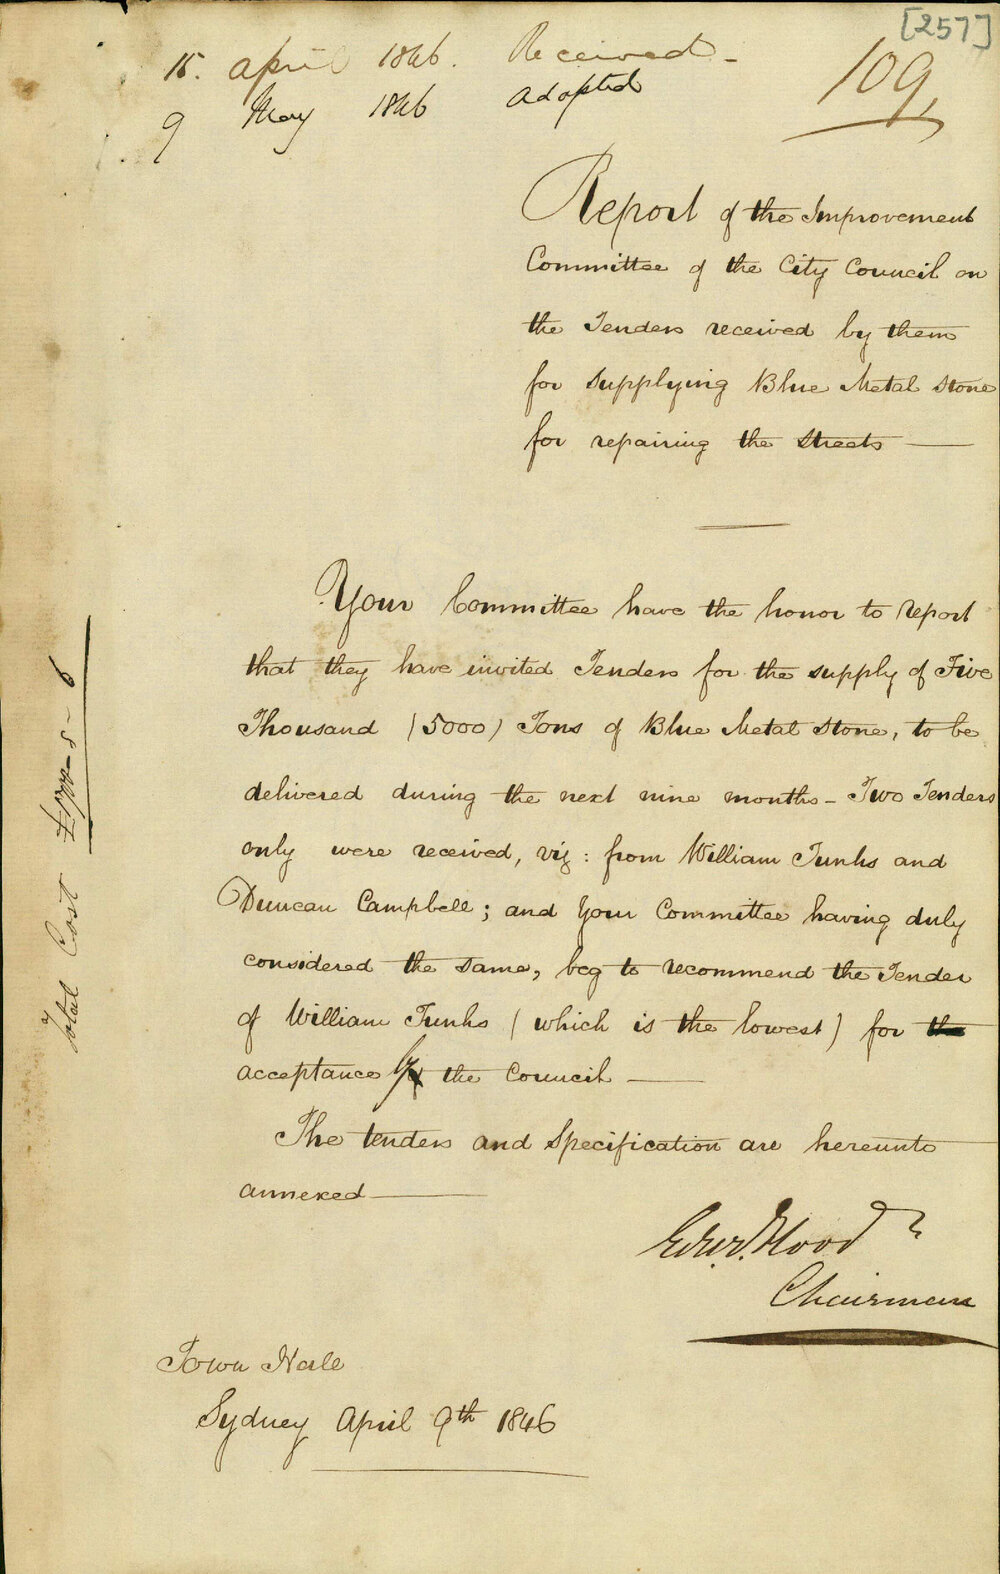 [257]
15. April 1846. Received -
109,
9 May 1846 Adopted
Report of the Improvement
Committee of the City Council on
the Tenders received by them
for supplying Blue Metal Stone
for repairing the Streets —
Your Committee have the honor to report
that they have invited Tenders for the supply of Five
Thousand (5000) Tons of Blue Metal Stone, to be
delivered during the next nine months - Two Tenders
only were received, viz: from William Tunks and
Duncan Campbell; and Your Committee having duly
considered the same, beg to recommend the Tender
of William Tunks (which is the lowest) for the
acceptance by the Council —
The tenders and Specification are hereunto
annexed —
Edwd. Flood
Chairman
Town Hall
Sydney April 9th 1846
Total Cost